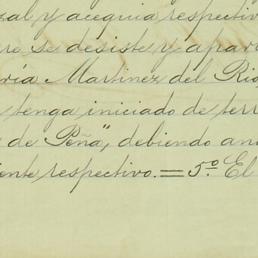 zal y acequia respectiv
re se desiste y apar
ría Martinez del Rio
tenga iniciado de terr
de Peña", debiendo an
ente respectivo.= 5º El